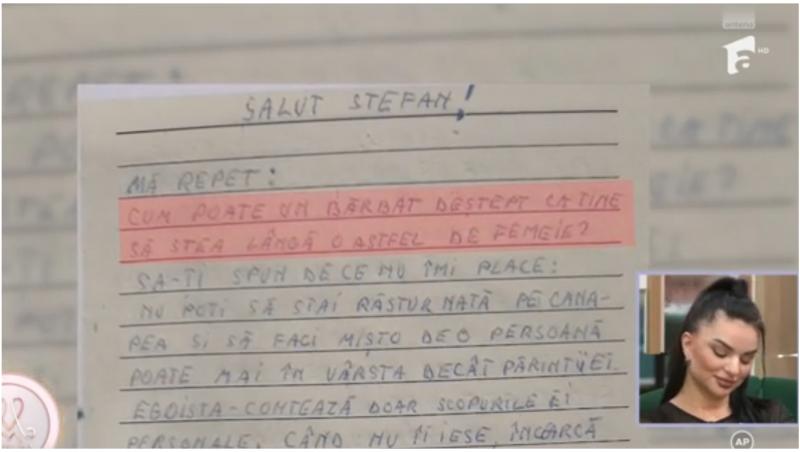 antena
HD
SALUT STEFAN!
MĂ REPET:
CUM POATE UN BĂRBAT DEȘTEPT CA TINE
SĂ STEA LÂNGĂ O ASTFEL DE FEMEIE?
SA-TI SPUN DE CE NU ÎMI PLACE:
NU POTI SĂ STAI RĂSTURNATĂ PE CANA-
PEA SI SĂ FACI MIȘTO DE O PERSOANĂ
POATE MAI ÎN VÂRSTA DECÂT PĂRINTII EI.
EGOISTA-CONTEAZĂ DOAR SCOPURILE EI
PERSONALE. CÂND NU ÎI IESE, ÎNCARCĂ
AP